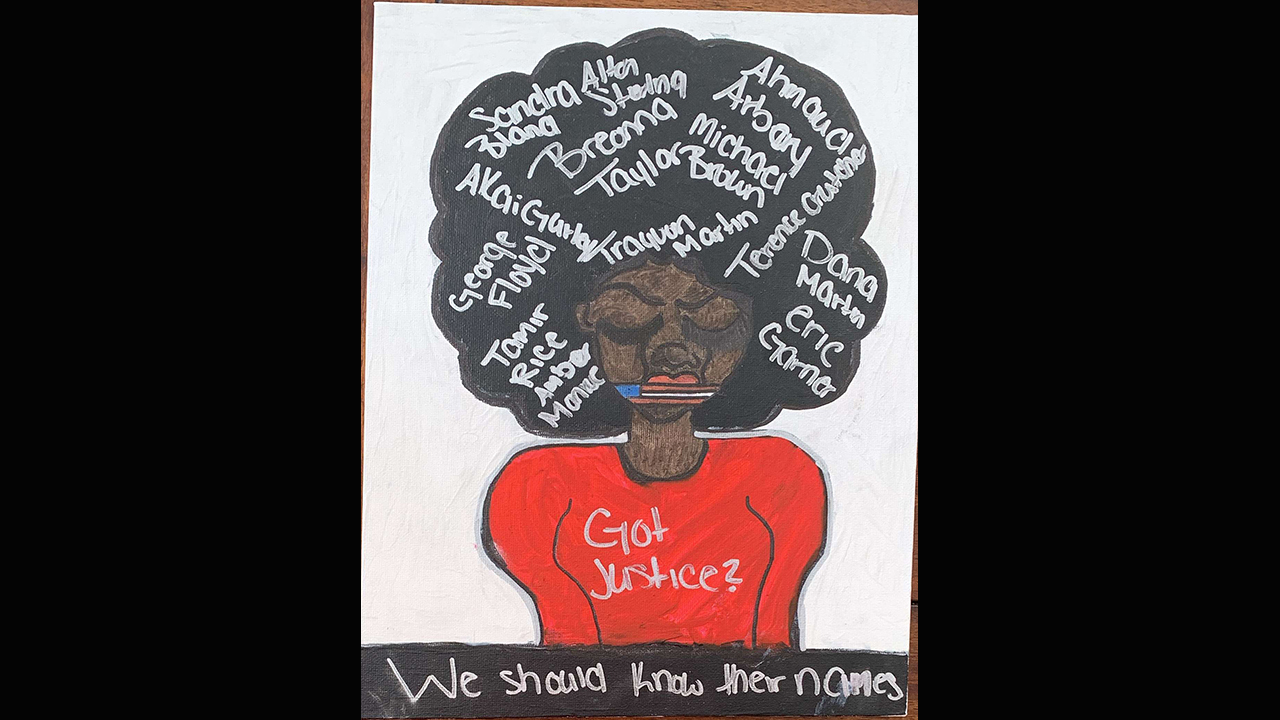 Sandra
Bland
Alton
Sterling
Ahmaud
Arbery
Breonna
Taylor
Michael
Brown
Akai Gurley
Trayvon
Martin
Terence Crutcher
George
Floyd
Dana
Martin
Tamir
Rice
Amber
Monroe
Eric
Garner
Got
Justice?
We should know their names